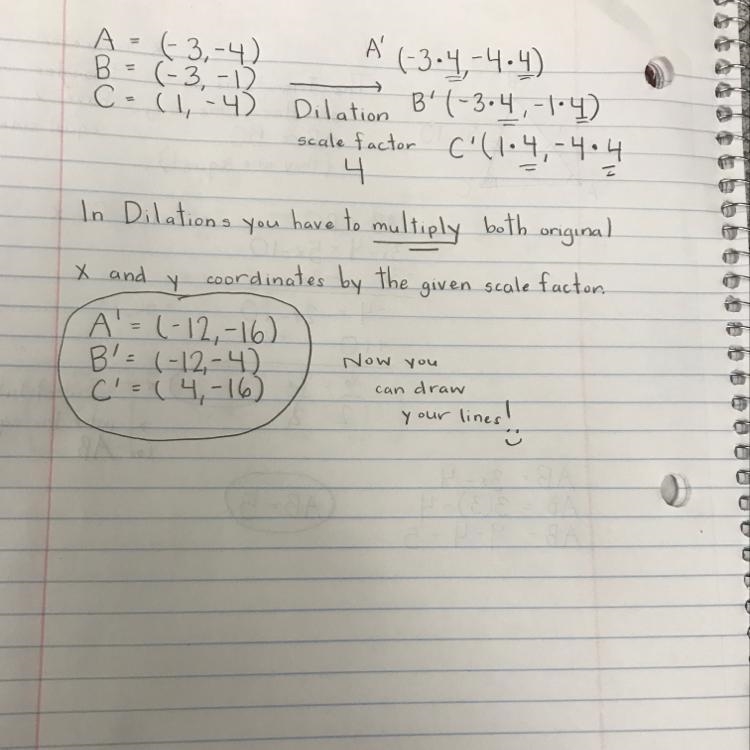 A = (-3,-4)
B = (-3, -1)
C = (1, -4)
Dilation
scale factor
4
A' (-3·4,-4·4)
B' (-3·4, -1·4)
C' (1·4, -4·4
In Dilations you have to multiply both original
x and y coordinates by the given scale factor.
A' = (-12,-16)
B' = (-12,-4)
C' = (4,-16)
Now you
can draw
your lines!